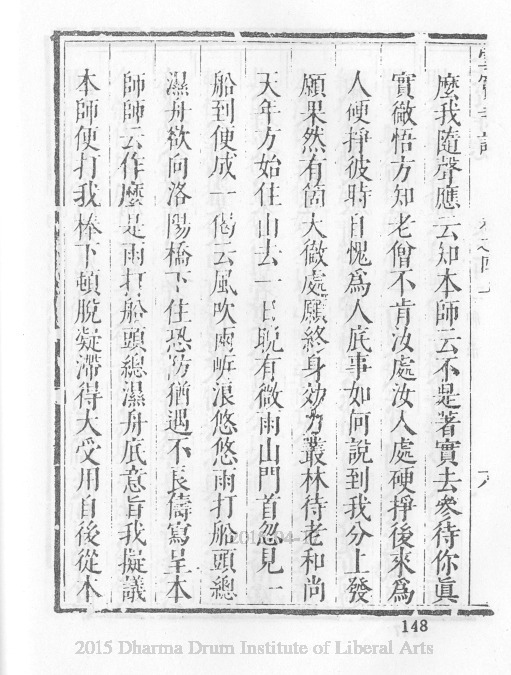 麼我隨聲應云知本師云不是著實去參待你眞
實徹悟方知老僧不肯汝處汝入處硬掙後來爲
人便掙彼時自愧爲人底事如何說到我分上發
願果然有箇大徹處願終身効力叢林待老和尚
天年方始住山去一日晚有微雨山門首忽見一
船到便成一偈云風吹兩岓浪悠悠雨打船頭總
濕舟欲向洛陽橋下住恐防猶遇不良儔寫呈本
師師云作麼是雨打船頭總濕舟底意旨我擬議
本師便打我棒下頓脫凝滯得大受用自後從本
148
2015 Dharma Drum Institute of Liberal Arts